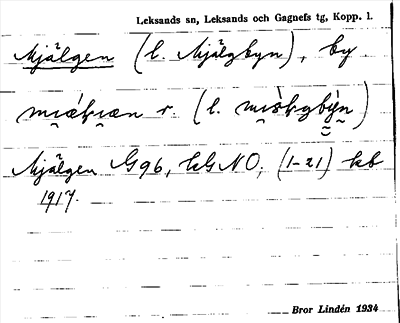 Leksands sn, Leksands och Gagnefs tg, Kopp. l.
Mjälgen (l. Mjälgbyn), by
r. (l.
Mjälgen G96, kGNO, (1-21) kb
1917.
Bror Lindén 1934